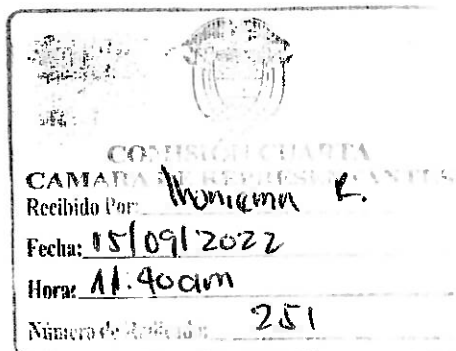 COMISIÓN CUARTA
CAMARA DE REPRESENTANTES
Recibido Por: K.
Fecha: 15/09/2022
Hora: 11:40am
Número de Radicado: 251